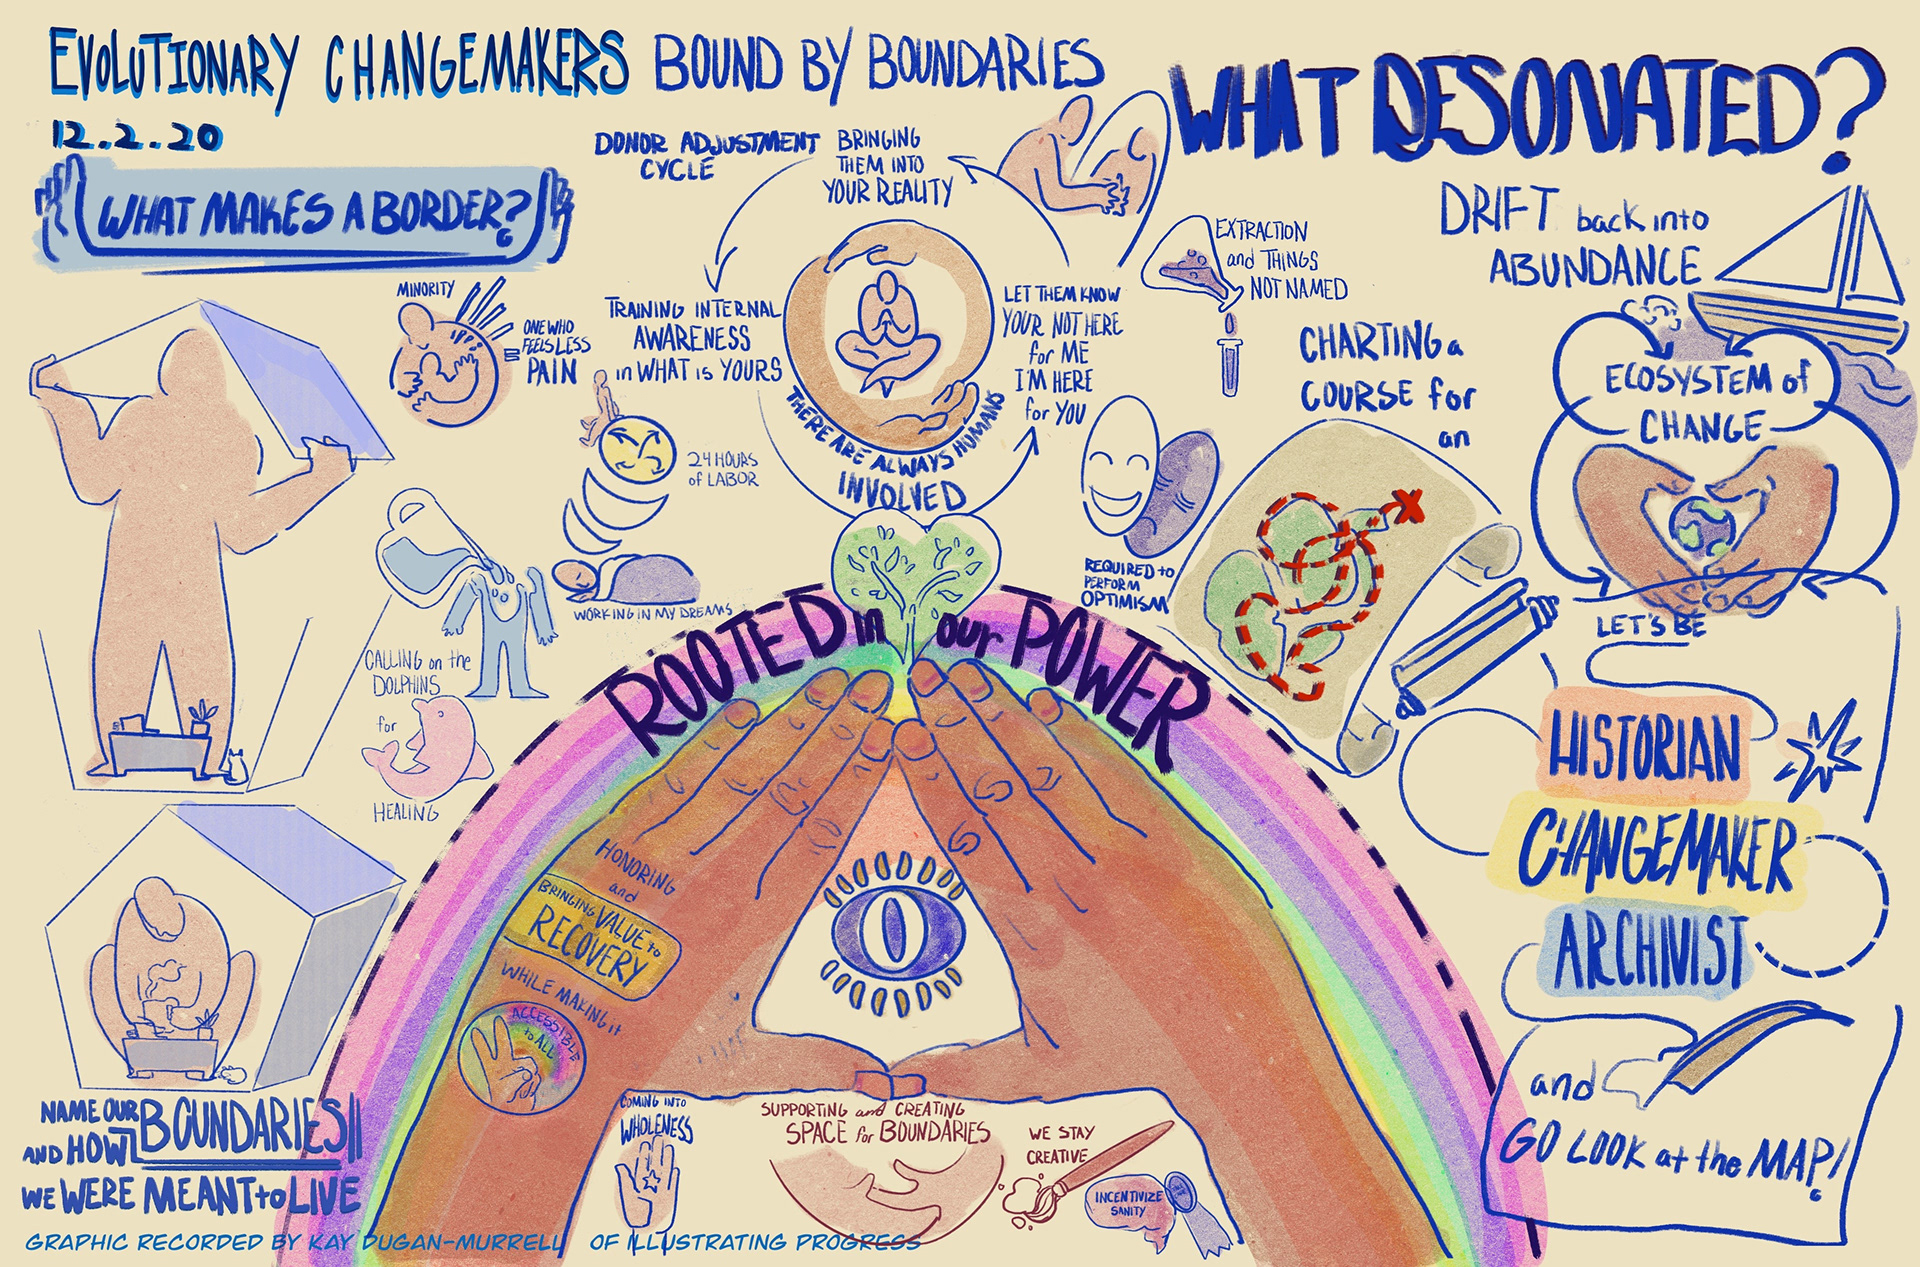 EVOLUTIONARY CHANGEMAKERS BOUND BY BOUNDARIES
12.2.20
WHAT MAKES A BORDER?
MINORITY
= ONE WHO
FEELS LESS
PAIN
DONOR ADJUSTMENT
CYCLE
BRINGING
THEM INTO
YOUR REALITY
TRAINING INTERNAL
AWARENESS
in WHAT is YOURS
LET THEM KNOW
YOUR NOT HERE
for ME
I'M HERE
for YOU
THERE ARE ALWAYS HUMANS
INVOLVED
24 HOURS
of LABOR
WORKING IN MY DREAMS
CALLING on the
DOLPHINS
for
HEALING
NAME OUR BOUNDARIES
AND HOW
WE WERE MEANT to LIVE
EXTRACTION
and THINGS
NOT NAMED
REQUIRED to
PERFORM
OPTIMISM
ROOTED in our POWER
HONORING
and
BRINGING VALUE to
RECOVERY
WHILE MAKING it
ACCESSIBLE
to ALL
COMING INTO
WHOLENESS
SUPPORTING and CREATING
SPACE for BOUNDARIES
WE STAY
CREATIVE
INCENTIVIZE
SANITY
WHAT RESONATED?
DRIFT back into
ABUNDANCE
CHARTING a
COURSE for
an
ECOSYSTEM of
CHANGE
LET'S BE
HISTORIAN
CHANGEMAKER
ARCHIVIST
and
GO LOOK at the MAP!
GRAPHIC RECORDED BY KAY DUGAN-MURRELL OF ILLUSTRATING PROGRESS